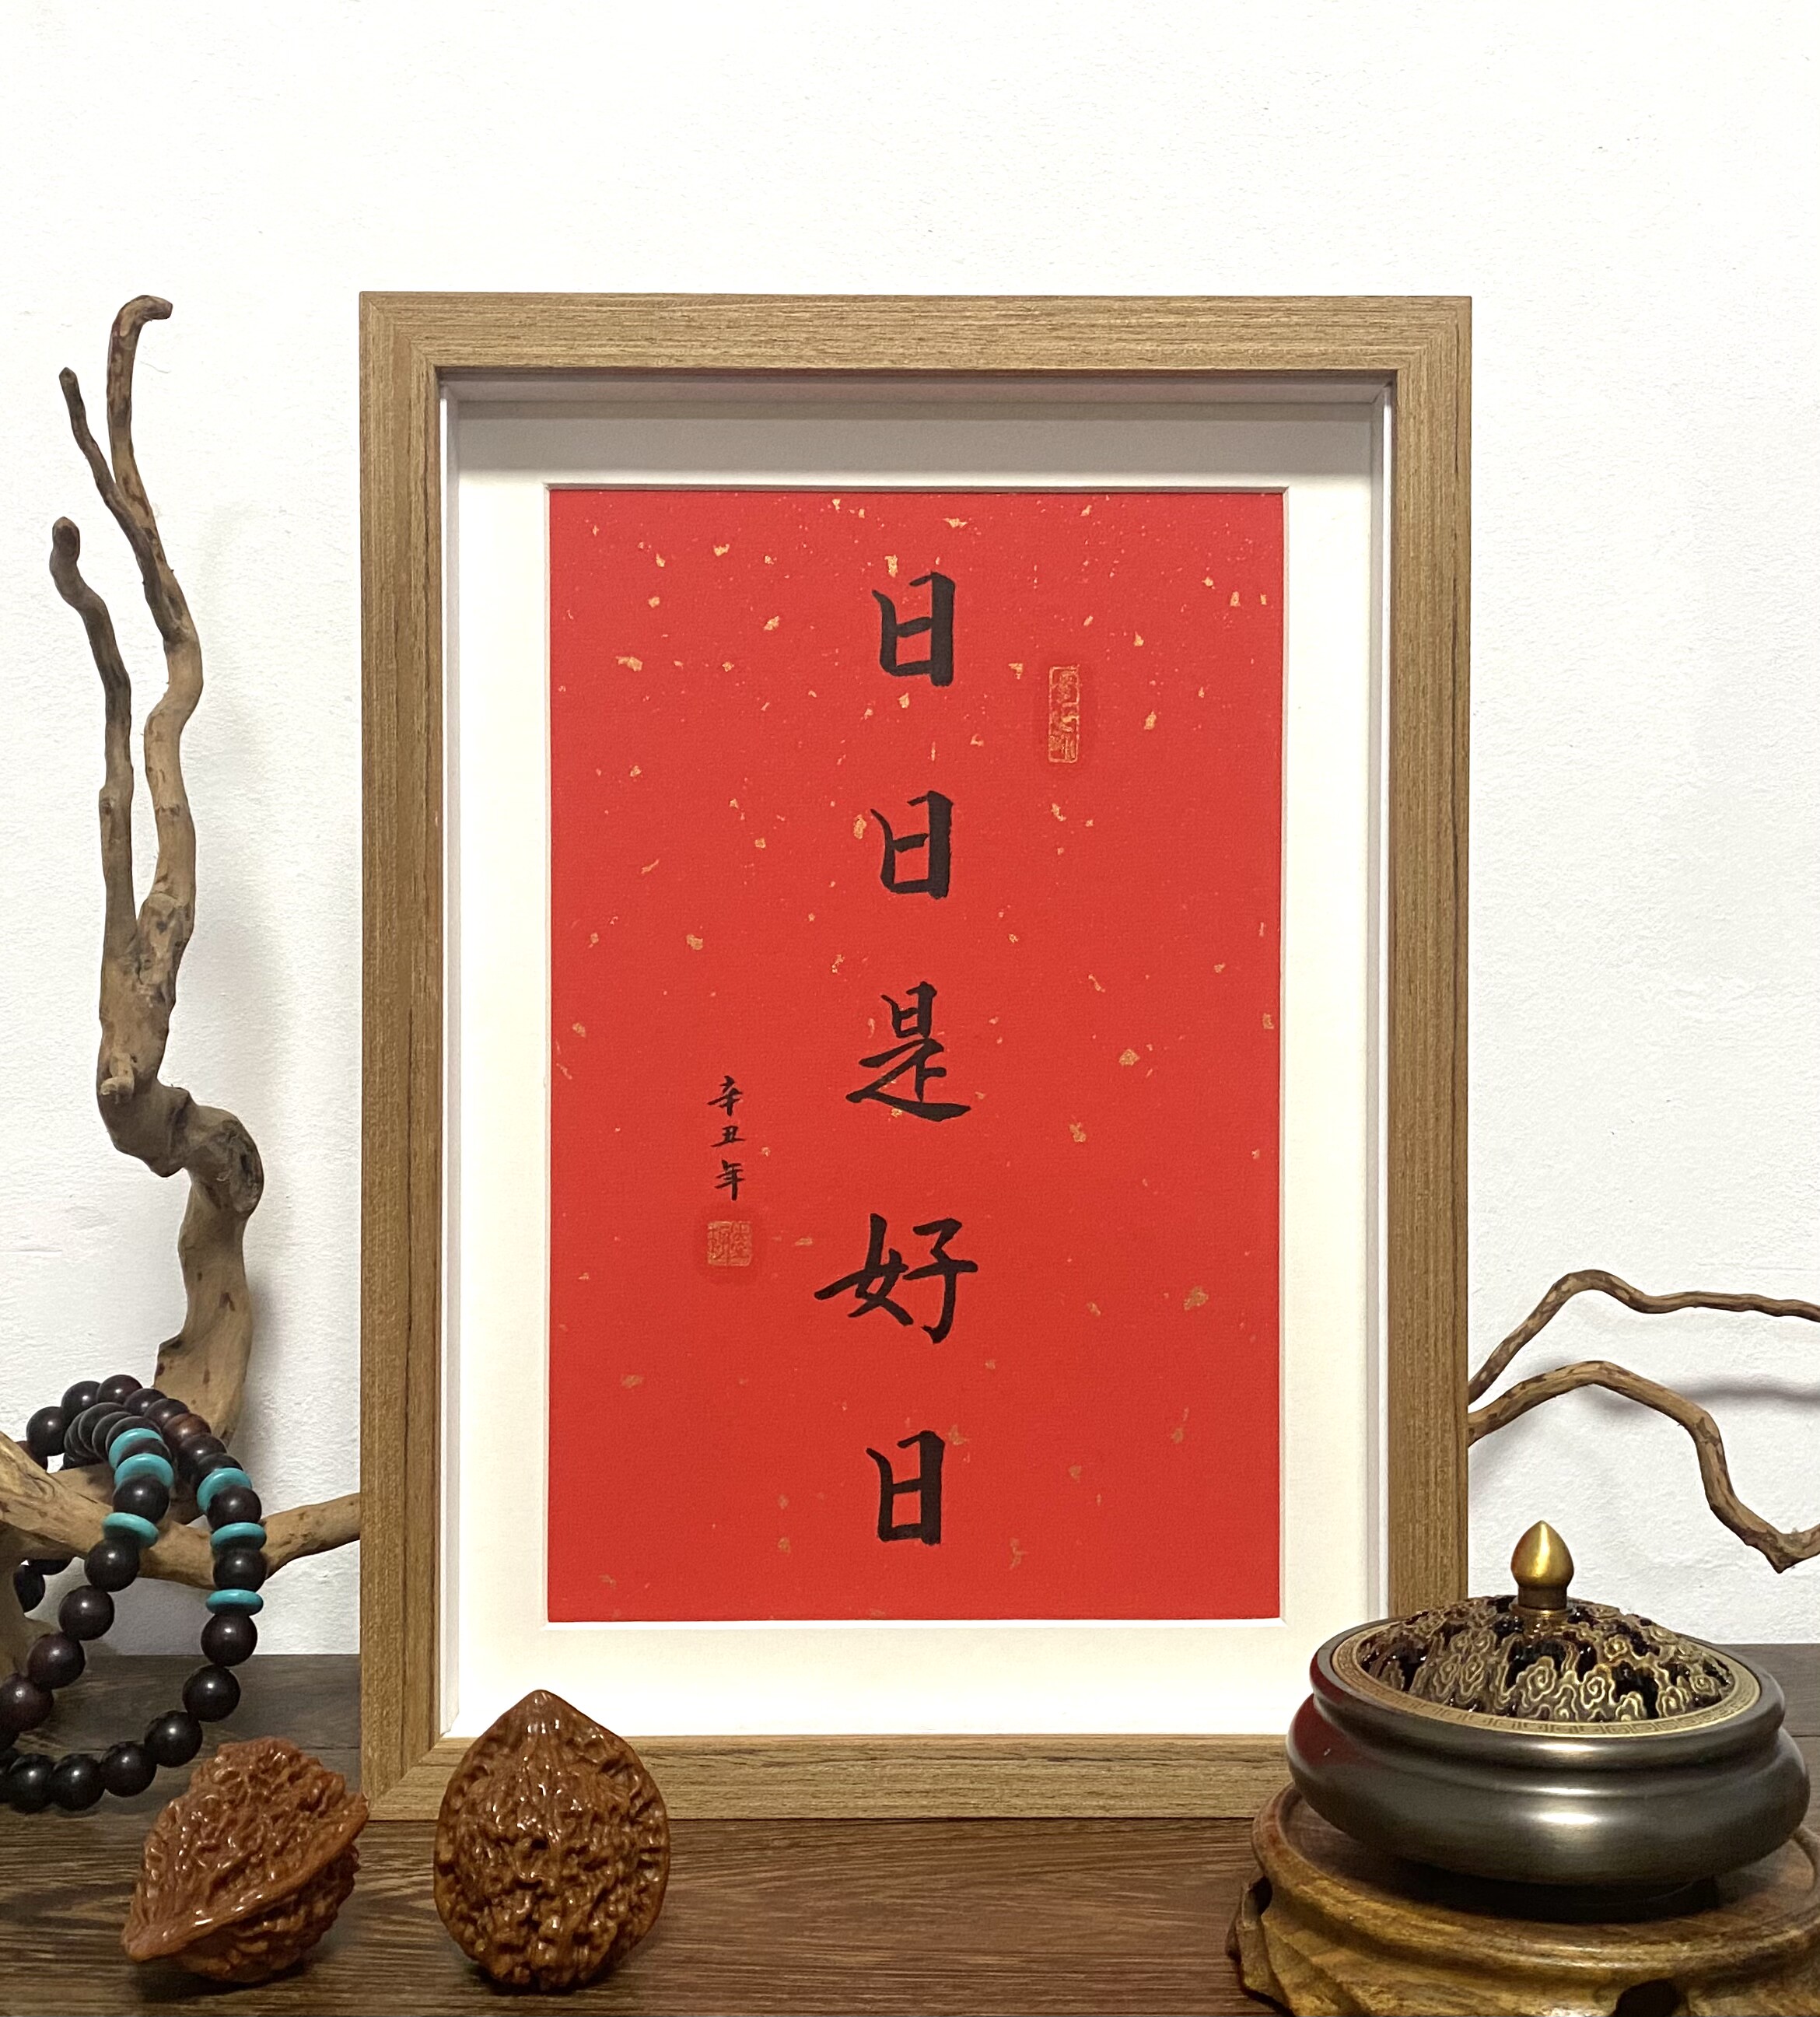 日日是好日
辛丑年